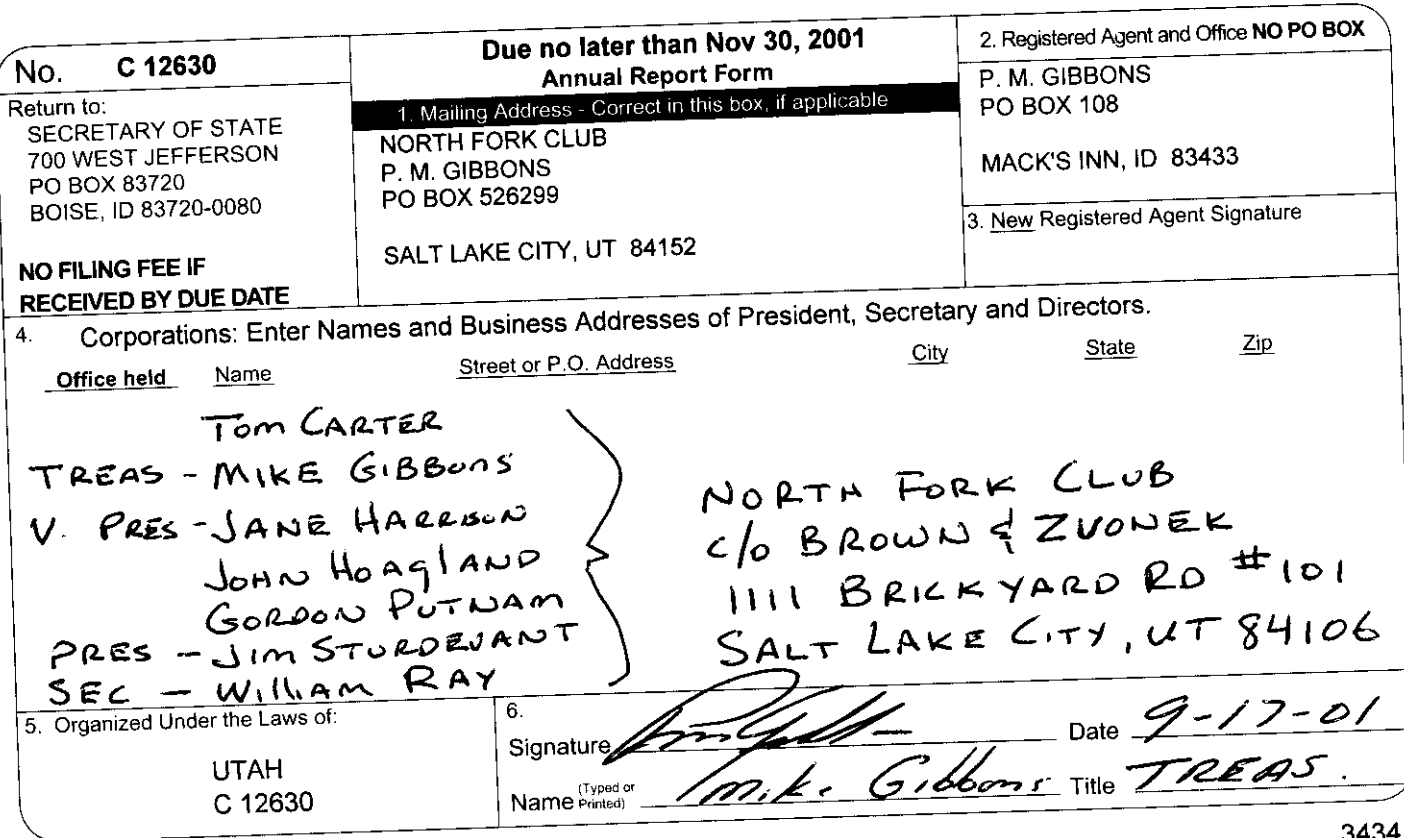 No. C 12630
Return to:
SECRETARY OF STATE
700 WEST JEFFERSON
PO BOX 83720
BOISE, ID 83720-0080
NO FILING FEE IF
RECEIVED BY DUE DATE
Due no later than Nov 30, 2001
Annual Report Form
1. Mailing Address - Correct in this box, if applicable
NORTH FORK CLUB
P. M. GIBBONS
PO BOX 526299
SALT LAKE CITY, UT 84152
2. Registered Agent and Office NO PO BOX
P. M. GIBBONS
PO BOX 108
MACK'S INN, ID 83433
3. New Registered Agent Signature
4. Corporations: Enter Names and Business Addresses of President, Secretary and Directors.
Office held Name Street or P.O. Address City State Zip
TOM CARTER
TREAS - MIKE GIBBONS
V. PRES - JANE HARRISON
JOHN HOAGLAND
GORDON PUTNAM
PRES - JIM STURDEVANT
SEC - WILLIAM RAY
NORTH FORK CLUB
c/o BROWN & ZVONEK
1111 BRICKYARD RD #101
SALT LAKE CITY, UT 84106
5. Organized Under the Laws of:
UTAH
C 12630
6.
Signature Date 9-17-01
Name (Typed or Printed) Mike Gibbons Title TREAS.
3434